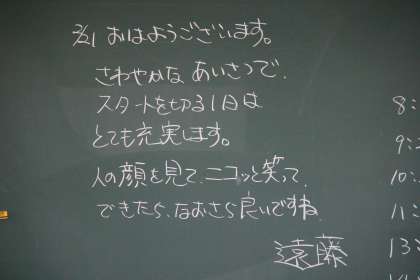 2/21 おはようございます。
さわやかな あいさつで、
スタートを切る1日は
とても充実します。
人の顔を見て、ニコッと笑って
できたら、なおさら良いですね。
遠藤
8:
9:
10:
11:
13: